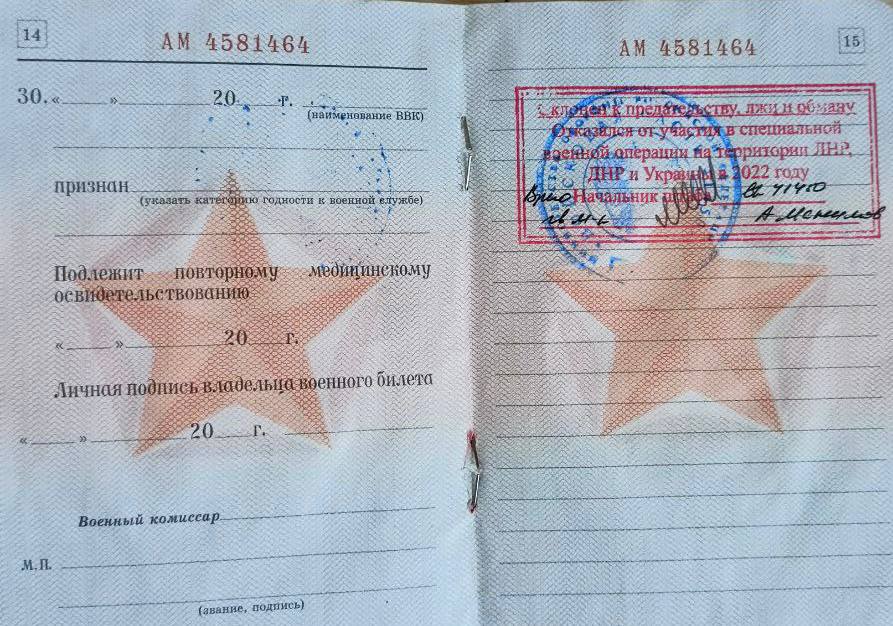 14
АМ 4581464
30. « » 20 г.
(наименование ВВК)
признан
(указать категорию годности к военной службе)
Подлежит повторному медицинскому
освидетельствованию
« » 20 г.
Личная подпись владельца военного билета
« » 20 г.
Военный комиссар
М.П.
(звание, подпись)
АМ 4581464
15
Склонен к предательству, лжи и обману
Отказался от участия в специальной
военной операции на территории ЛНР,
ДНР и Украины в 2022 году
Врио Начальник штаба